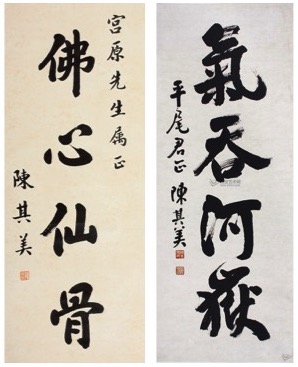 宫原先生属正
佛心仙骨
陳其美
氣吞河嶽
平尾君正
陳其美